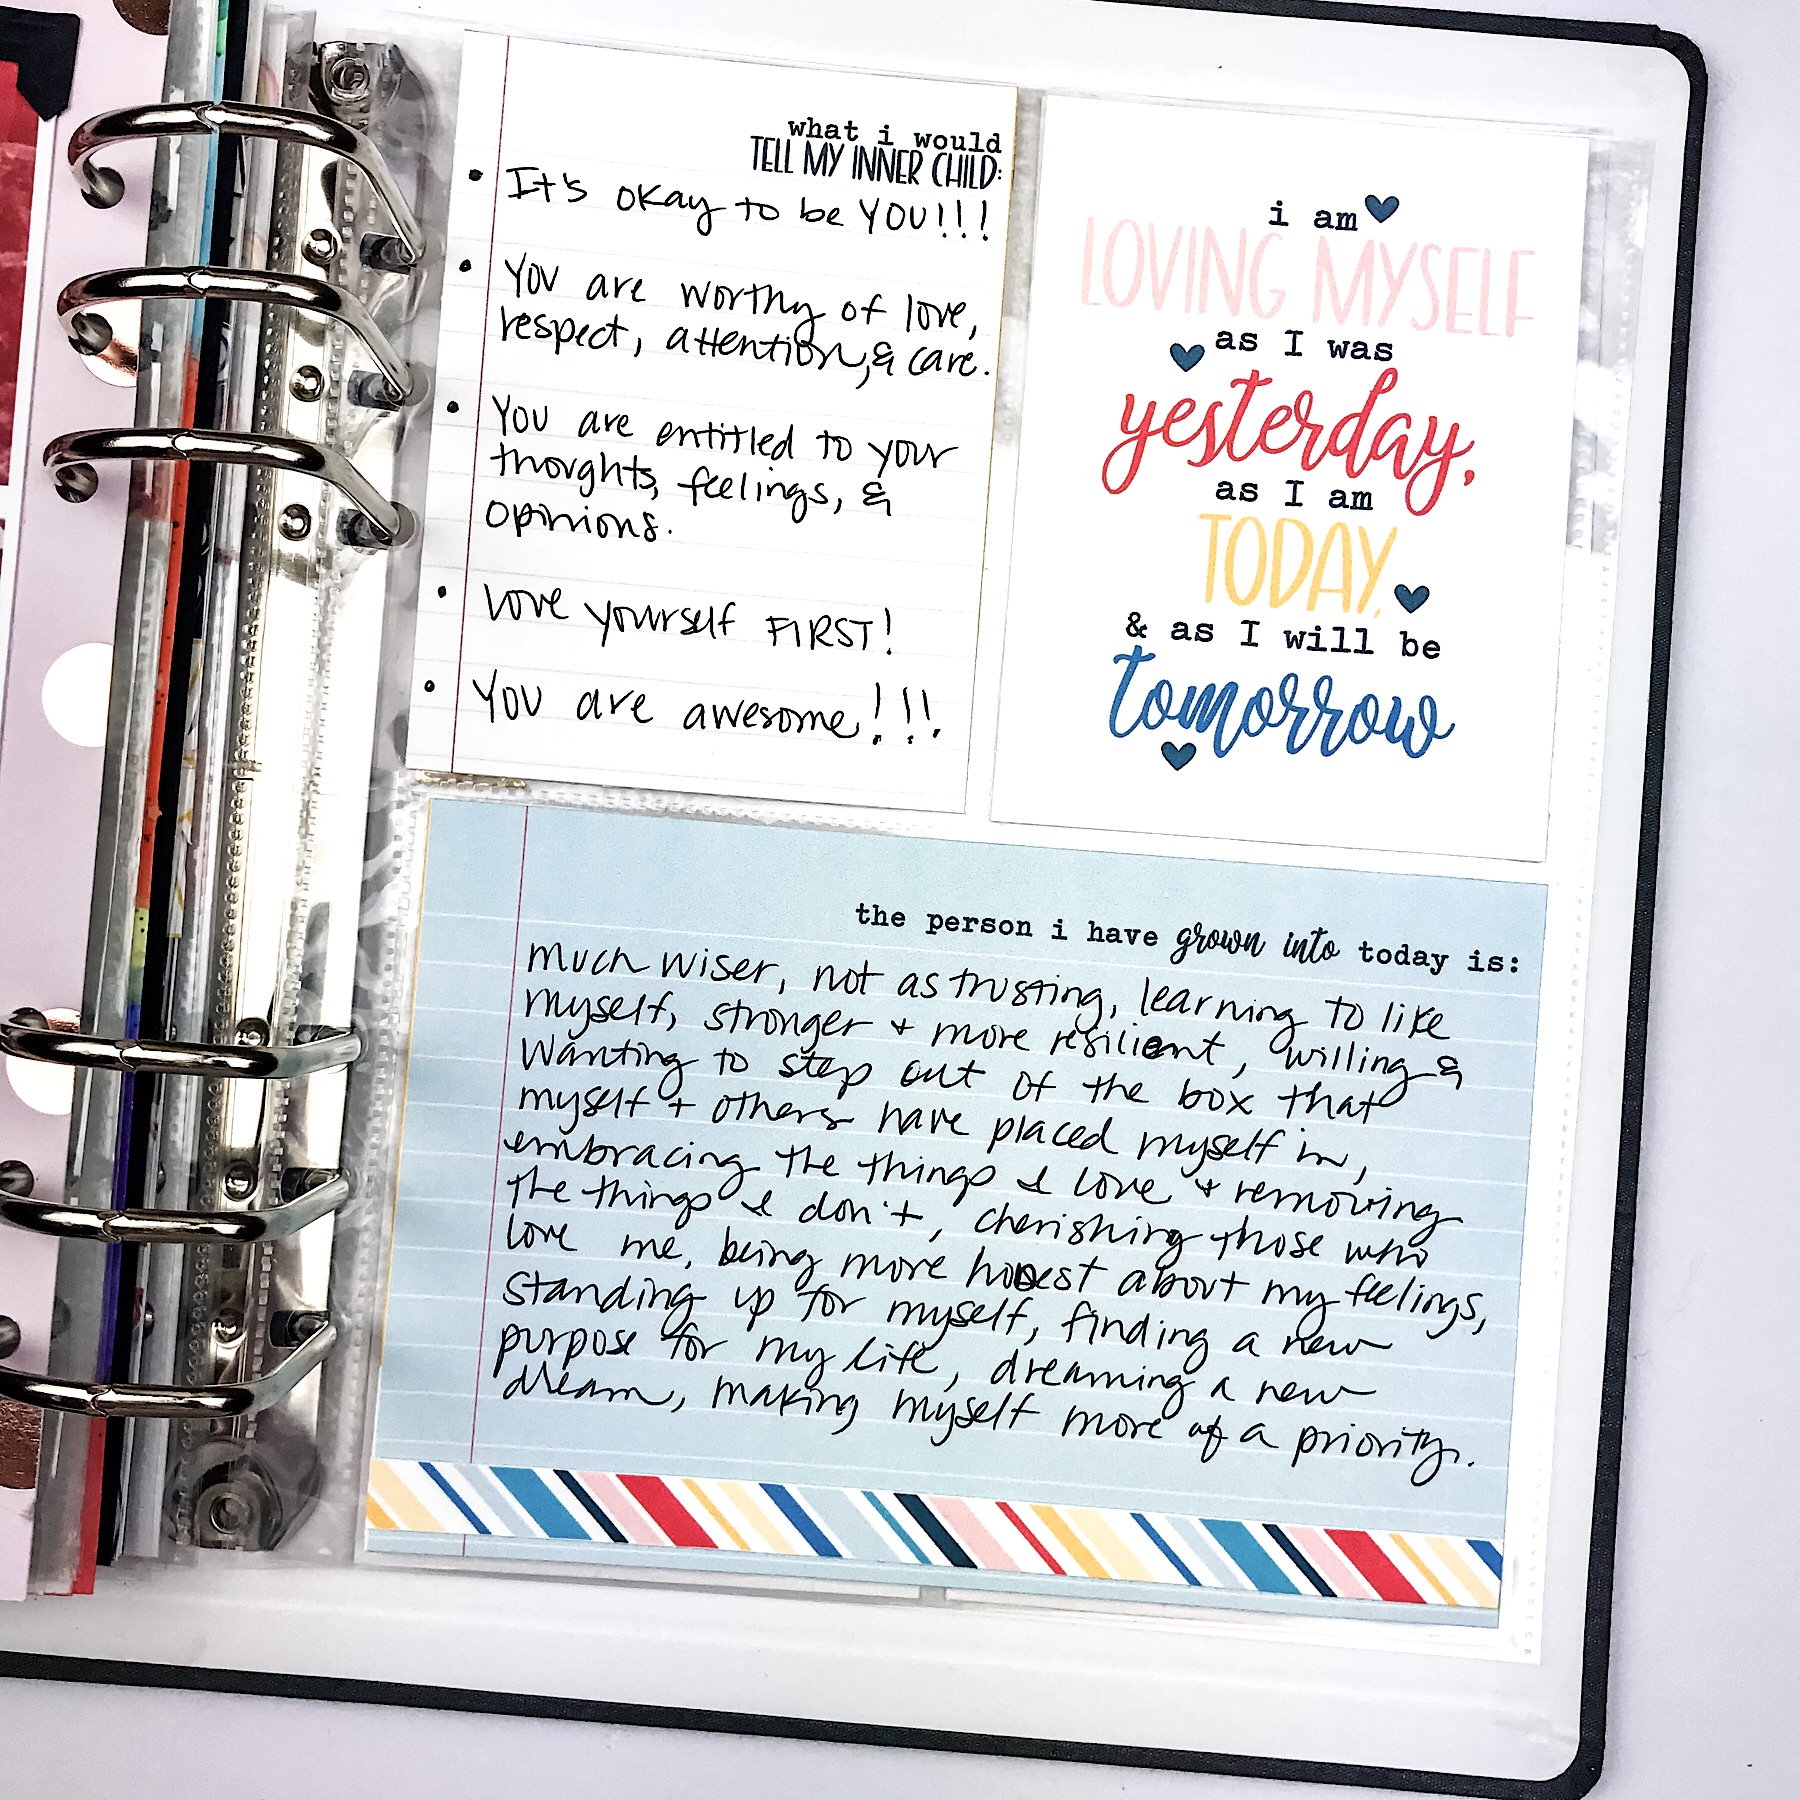 what i would
TELL MY INNER CHILD:
• It's okay to be YOU!!!
• You are worthy of love,
respect, attention, & care.
• You are entitled to your
thoughts, feelings, &
opinions.
• Love yourself FIRST!
• You are awesome!!!
i am
LOVING MYSELF
as I was
yesterday,
as I am
TODAY,
& as I will be
tomorrow
the person i have grown into today is:
much wiser, not as trusting, learning to like
myself, stronger + more resilient, willing &
wanting to step out of the box that
myself + others have placed myself in,
embracing the things I love + removing
the things I don't, cherishing those who
love me, being more honest about my feelings,
standing up for myself, finding a new
purpose for my life, dreaming a new
dream, making myself more of a priority.